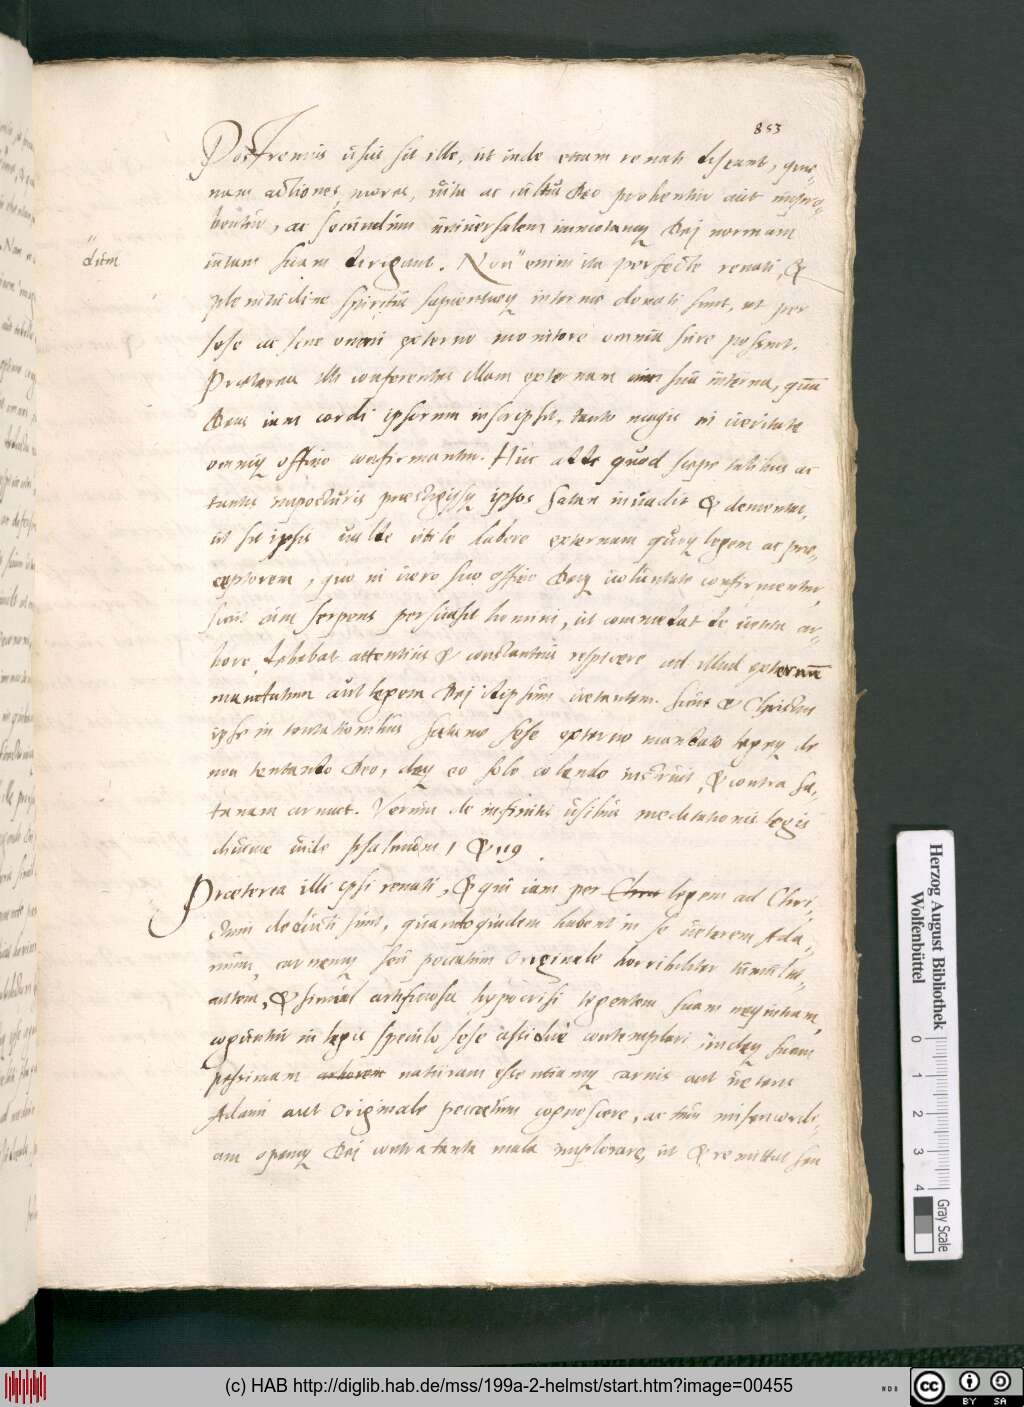 853
Postremus usus sit ille, ut inde etiam renati discant, quae-
nam actiones, mores, vita ac cultus Deo probentur aut impro-
bentur, ac secundum universalem immotamq Dei normam
dum
vitam suam dirigant. Non" enim ita perfecte renati, &
plenitudine spiritus sapientiaeq internae donati sunt, ut per
sese ac sine omni externo monitore omnia scire possint.
Praeterea illi conferentes illam externam cum sua interna, quam
Deus iam cordi ipsorum inscripsit, tanto magis in veritate
omniq officio confirmantur. Huc adde quod saepe talibus ac
tantis imposturis praestigiisq ipsos Satan invadit & dementat,
ut sit ipsis valde utile habere externam quoq legem ac prae-
ceptorem, quo in vero suo officio Deiq voluntate confirmentur,
Sicut cum serpens persuasit homini, ut comedat de vetita ar-
bore, debebat attentius & constantius respicere ad illud externum
mandatum aut legem Dei id ipsum vetantem. Sicut & Christus
ipse in tentationibus Satanae sese externo mandato legeq de
non tentando Deo, deq eo solo colendo instruit, & contra Sa-
tanam armat. Verum de infinitis usibus meditationis legis
divinae vide psalmum 1 & 119.
Praeterea illi ipsi renati, & qui iam per legem ad Chri-
stum deducti sunt, quandoquidem habent in se veterem Ada-
mum, carnemq seu peccatum originale horribiliter tumultu-
antem, & simul artificiosa hypocrisi tegentem suam nequitiam,
coguntur in legis speculo sese assidue contemplari, indeq suam
pessimam arborem naturam essentiamq carnis aut veteris
Adami aut originale peccatum cognoscere, ac tum misericordi-
am opemq Dei contra tanta mala implorare, ut & remittat seu
Herzog August Bibliothek
Wolfenbüttel
0 1 2 3 4
Gray Scale
(c) HAB http://diglib.hab.de/mss/199a-2-helmst/start.htm?image=00455
cc BY SA